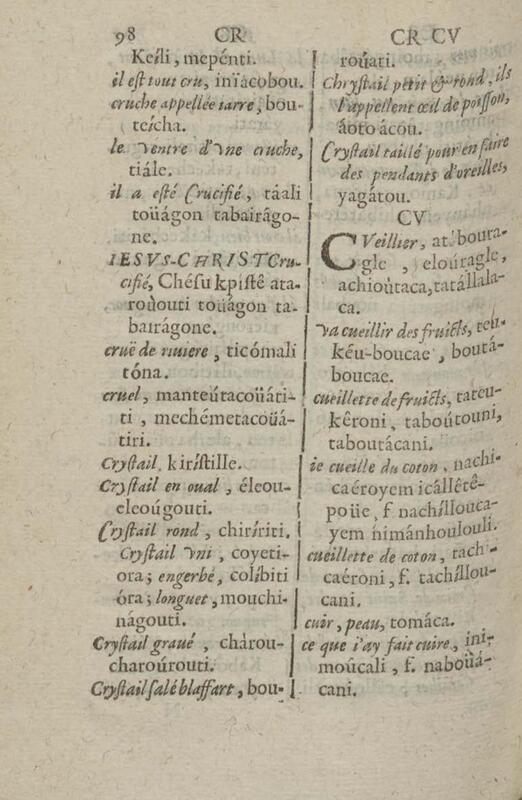 98 CR
Keíli, mepénti.
il est tout cru, inïacobou.
cruche appellée iarre, bou-
teícha.
le ventre d'vne cruche,
tiále.
il a esté Crucifié, táali
toüágon tabairágo-
ne.
IESVS-CHRIST Cru-
cifié, Chésu kpístê ata-
roùouti toüágon ta-
bairágone.
cruë de riuiere, ticómali
tóna.
cruel, manteútacoüáti-
ti, mechémetacoüá-
tiri.
Crystail, kirístille.
Crystail en oual, éleou-
eleoúgouti.
Crystail rond, chiríriti.
Crystail vni, coyeti-
ora; engerbé, colíbiti
óra; longuet, mouchi-
nágouti.
Crystail graué, chárou-
charoúrouti.
Crystail salé blaffart, bou-
CR CV
roúati.
Chrystail petit & rond, ils
l'appellent œil de poisson,
áoto ácou.
Crystail taillé pour en faire
des pendants d'oreilles,
yagátou.
CV
CVeillier, atabbouta-
gle, eloúragle,
achioútaca, tatállala-
ca.
va cueillir des fruicts, teu-
kéu-boucae, boutá-
boucae.
cueillette de fruicts, tateu-
kêroni, taboútouni,
taboutácani.
ie cueille du coton, nachi-
caéroyem icállêtê-
poüe, f nachíllouca-
yem nimánhoulouli.
cueillette de coton, tach-
caéroni, f. tachíllou-
cani.
cuir, peau, tomáca.
ce que i'ay fait cuire, ini-
moúcali, f. naboüá-
cani.